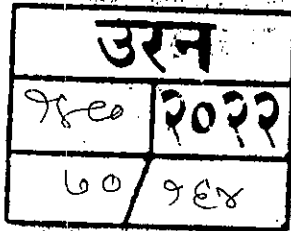 उरन
१४९० २०२२
७० / १६४